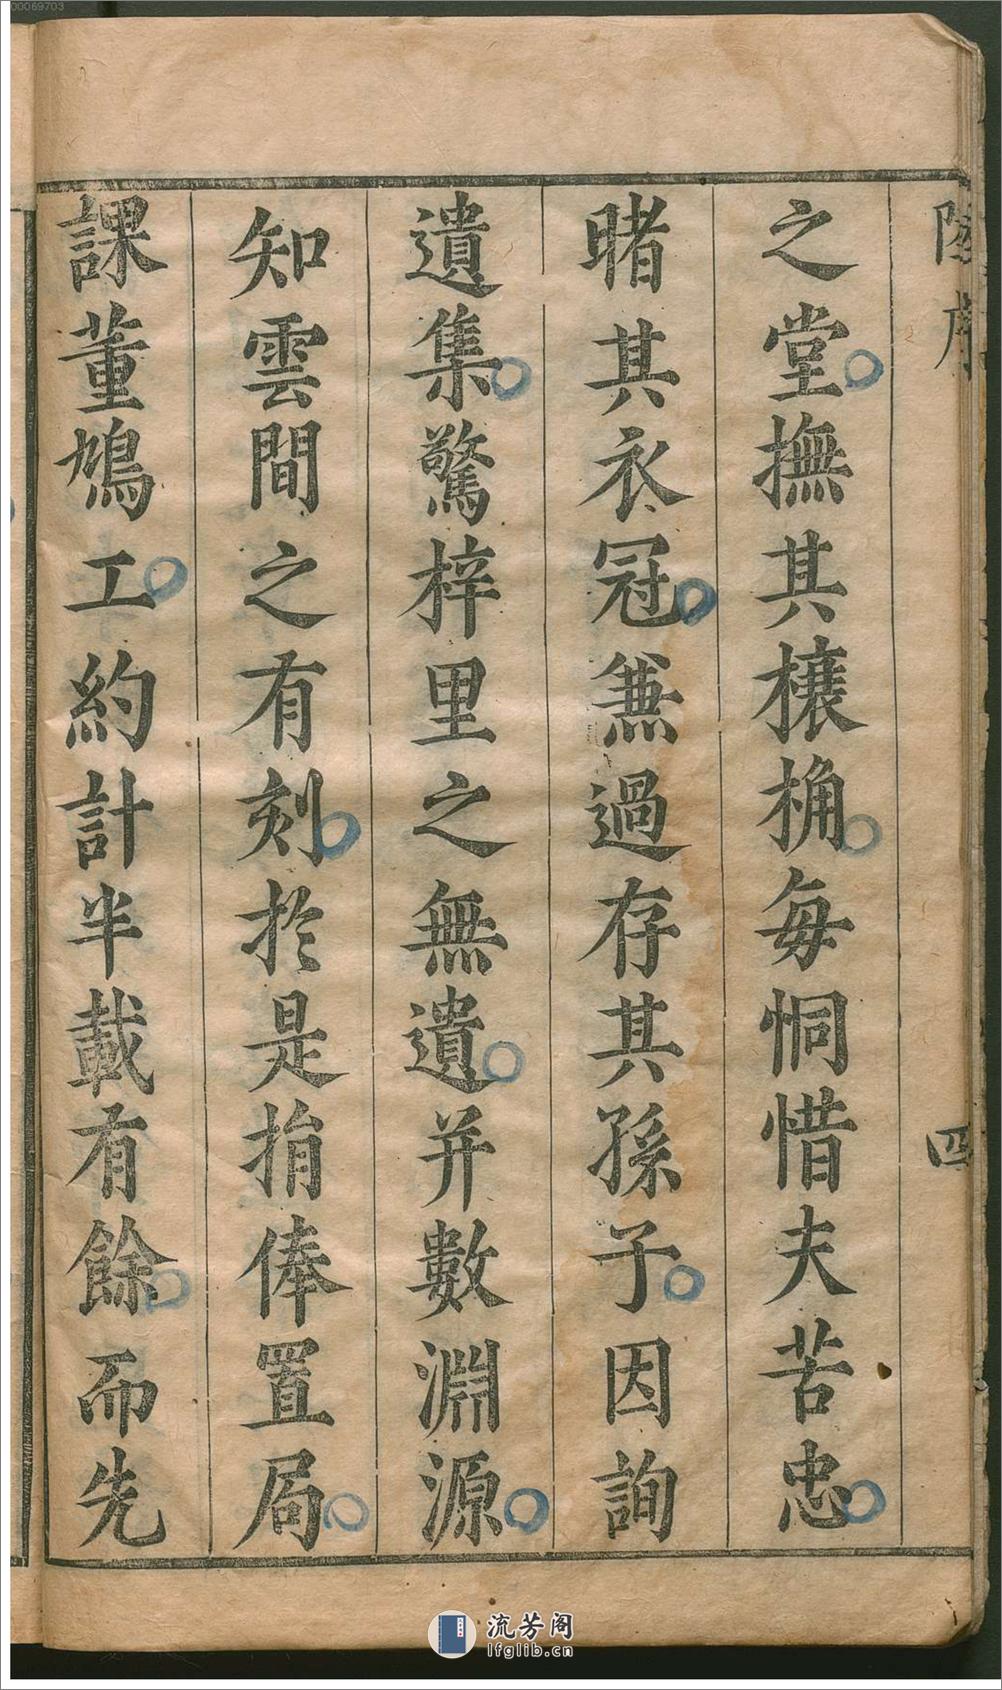 之堂撫其榱桷每恫惜夫苦忠
睹其衣冠兼過存其孫子因詢
遺集驚梓里之無遺并數淵源
知雲間之有刻於是捐俸置局
課董鳩工約計半載有餘而先
四
00069703
流芳阁
lfglib.cn